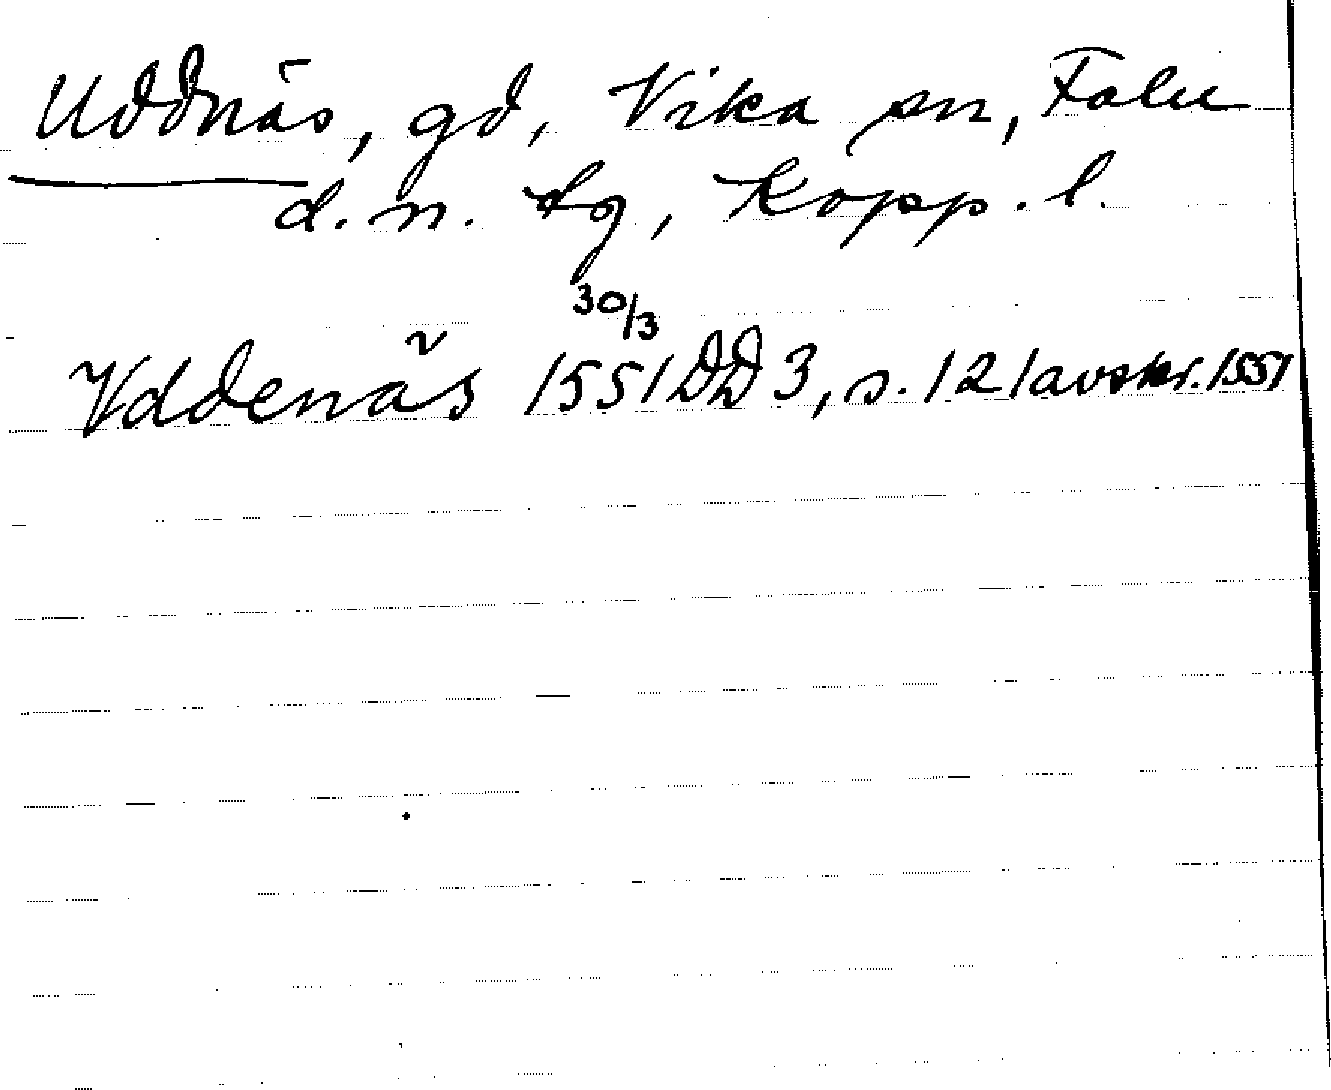 Uddnäs, gd, Vika sn, Falu
d. n. tg, Kopp. l.
30/3
Vddenäs 1551 DD 3, s. 121 avskr. 1551